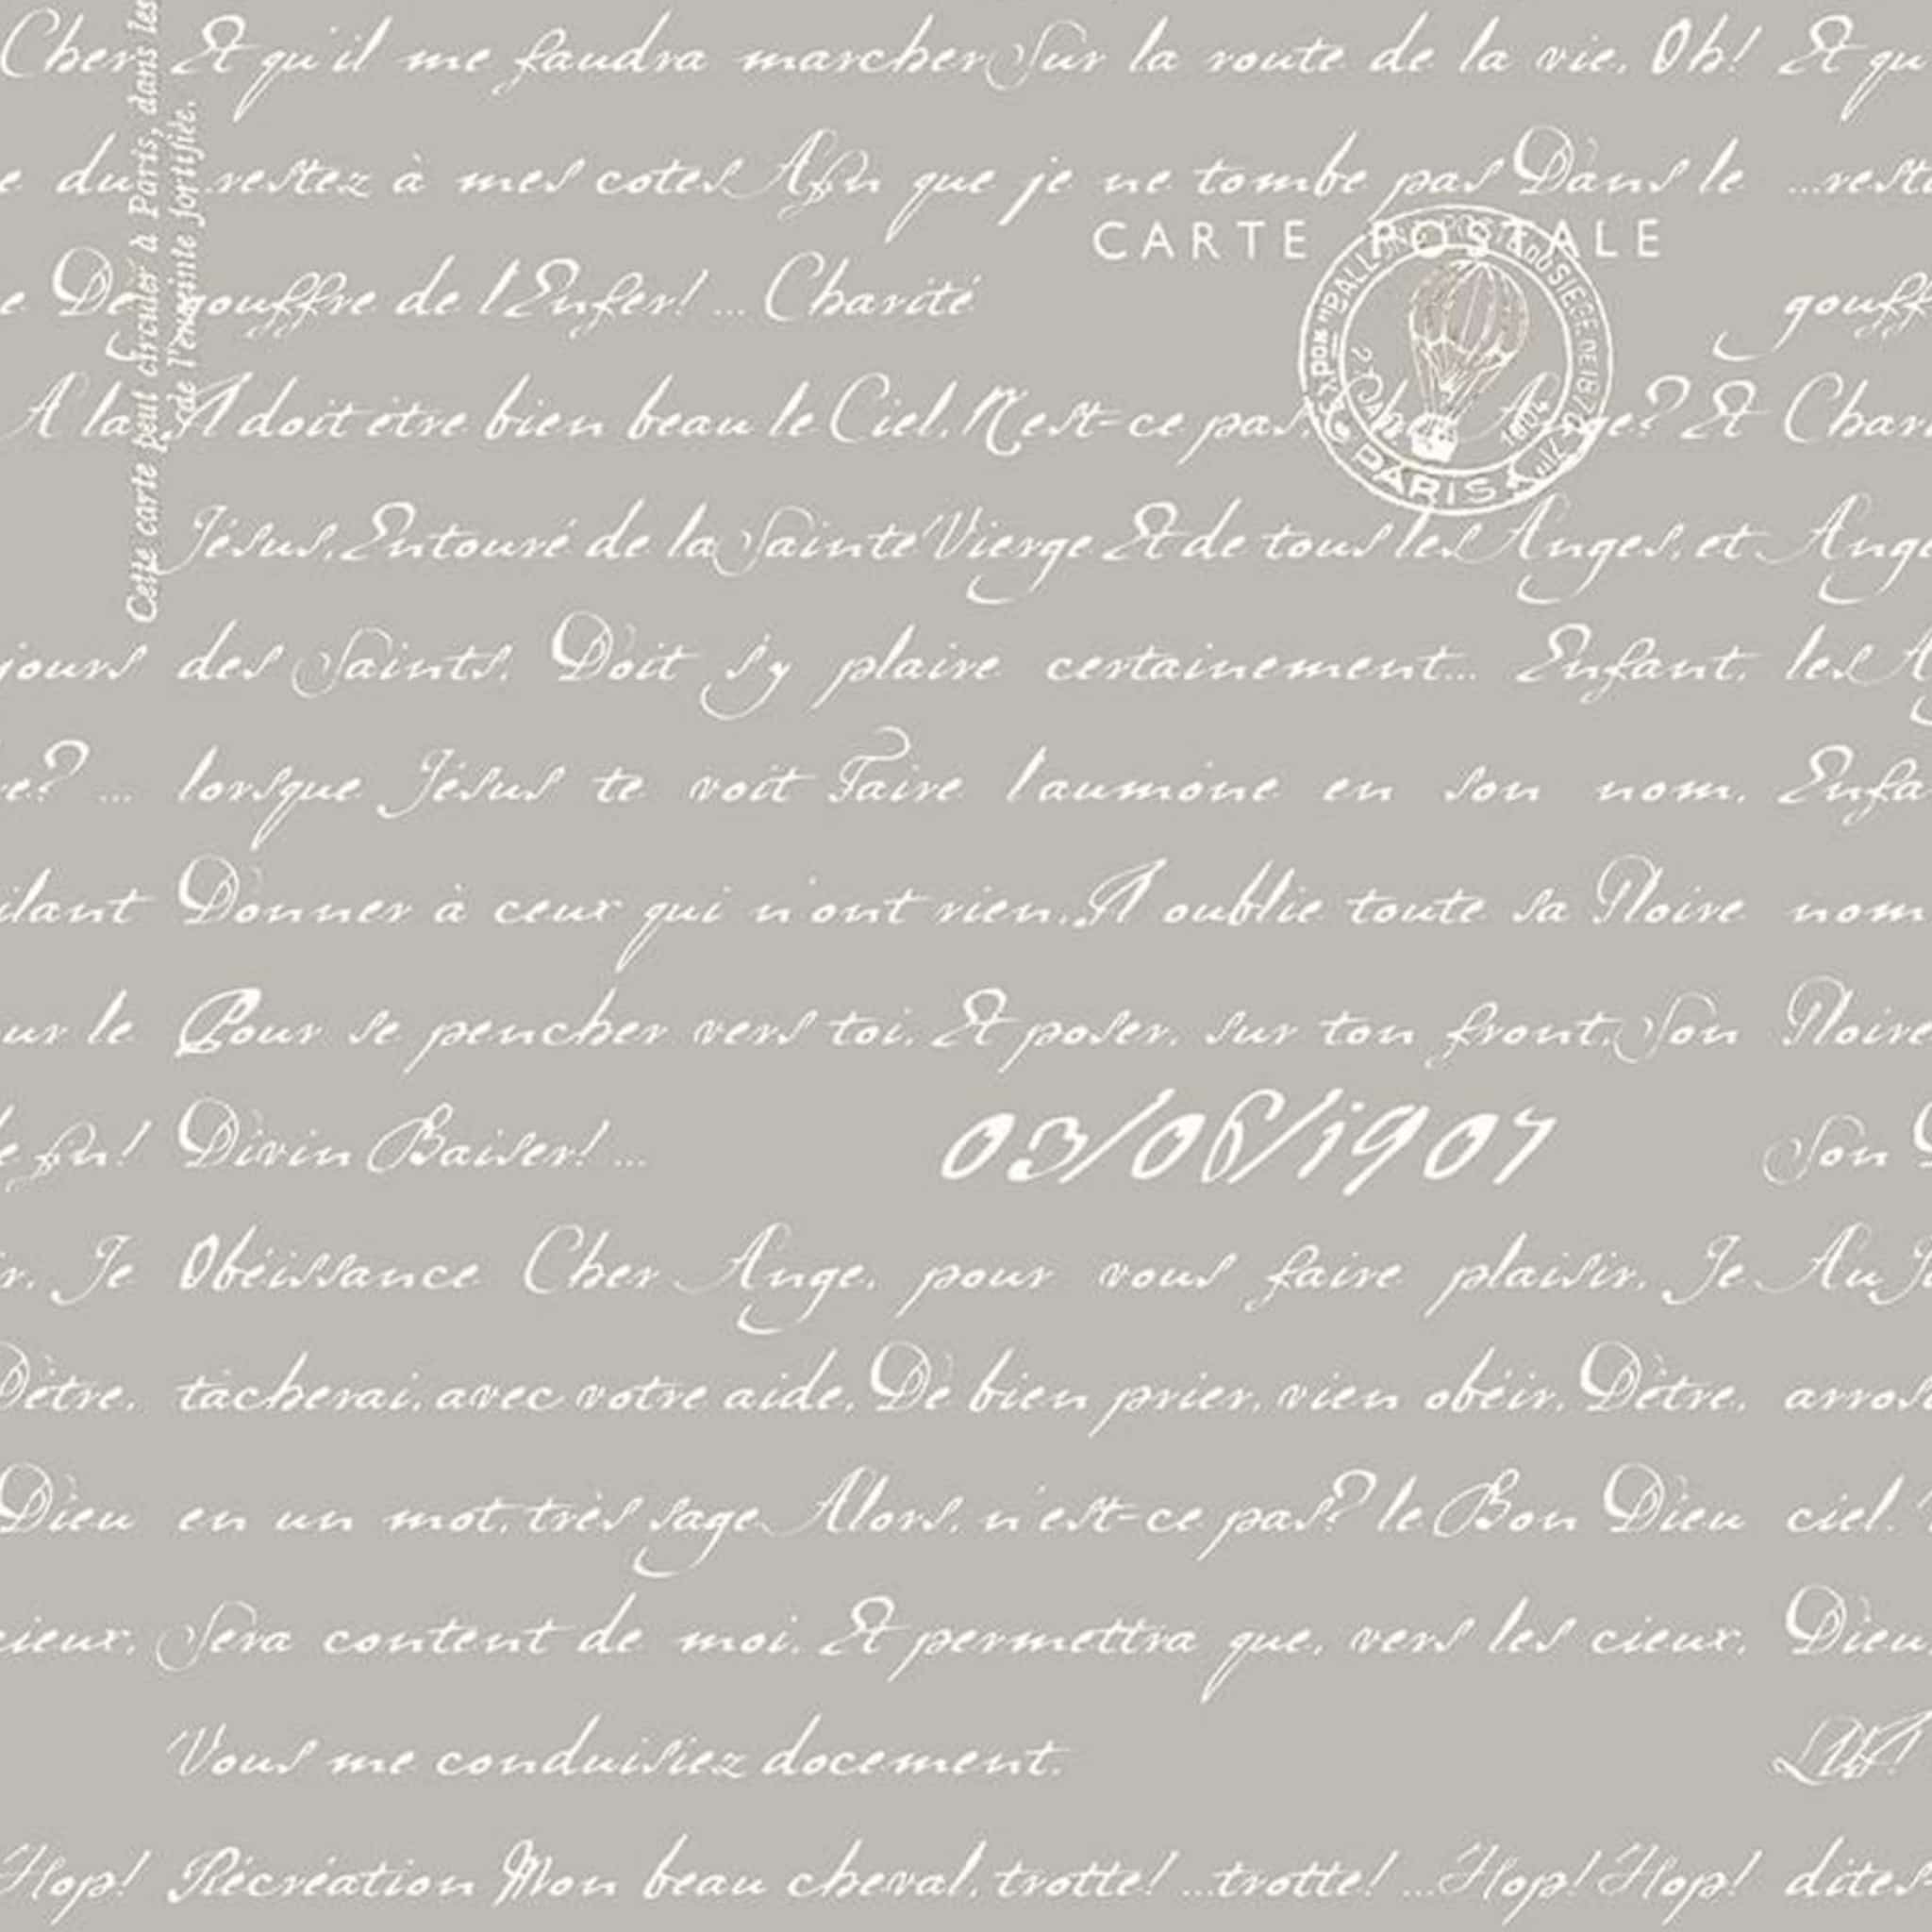 Cher Et qu'il me faudra marcher Sur la route de la vie. Oh! Et qu
e du ...restez à mes cotes Afin que je ne tombe pas Dans le ...reste
CARTE POSTALE
e De gouffre de l'Enfer! ... Charité gouff
A la Il doit être bien beau le Ciel. N'est-ce pas, Cher Ange? Et Char
Jésus, Entouré de la Sainte Vierge Et de tous les Anges, et Ange
jours des Saints. Doit s'y plaire certainement... Enfant, les A
e? ... lorsque Jésus te voit Faire l'aumône en son nom. Enfa
ilant Donner à ceux qui n'ont rien. Il oublie toute sa Gloire nom
ur le Pour se pencher vers toi, Et poser, sur ton front, Son Gloire
le fin! Divin Baiser! ... 03/06/1907 Son D
r. Je Obéissance Cher Ange, pour vous faire plaisir, Je Au J
D'être, tâcherai, avec votre aide, De bien prier, vien obéir, D'être, arros
Dieu en un mot, très sage Alors, n'est-ce pas? le Bon Dieu ciel.
cieux, Sera content de moi, Et permettra que, vers les cieux, Dieu
Vous me conduisiez docement.
Hop! Récréation Mon beau cheval, trotte! ...trotte! ...Hop! Hop! dites
Cette carte peut circuler à Paris, dans les
de l'enceinte fortifiée.
PAR BALLON POSTAL DU SIEGE DE 1870
PARIS